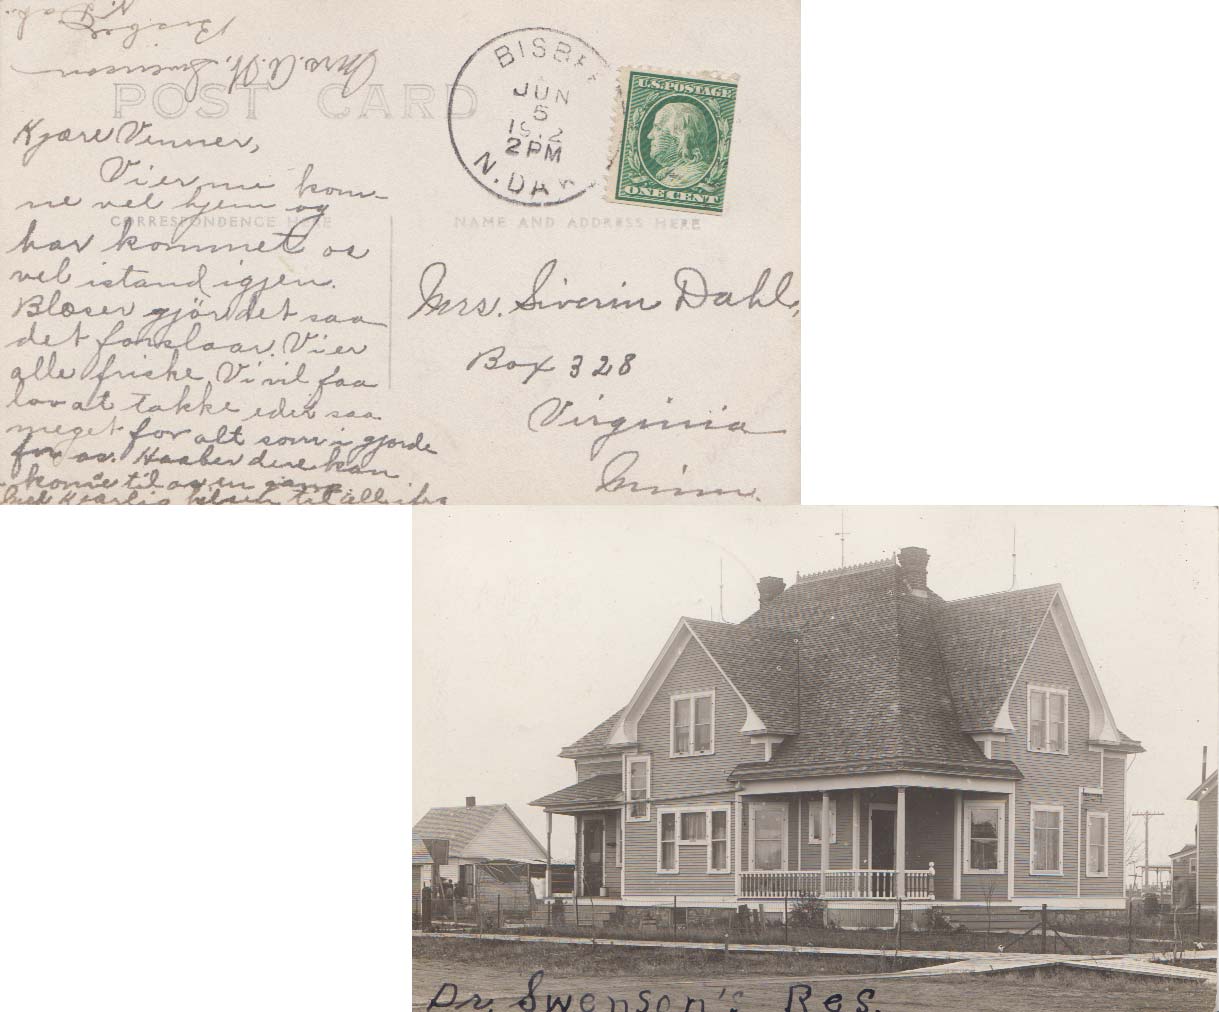 Mrs. A. W. Swenson
Bisbee
N. Dak.
POST CARD
BISBEE
JUN
5
1912
2 PM
N. DAK
U.S. POSTAGE
ONE CENT
CORRESPONDENCE HERE
NAME AND ADDRESS HERE
Kjære Venner,
Vi er nu kom-
ne vel hjem og
har kommet os
vel istand igjen.
Blæser gjör det saa
det forslaar. Vi er
alle friske. Vi vil faa
lov at takke eder saa
meget for alt som i gjorde
for os. Haaber dere kan
komme til os en gang
Med Kjærlig hilsen til alle
Mrs. Siverin Dahl,
Box 328
Virginia
Minn.
Dr. Swenson's Res.